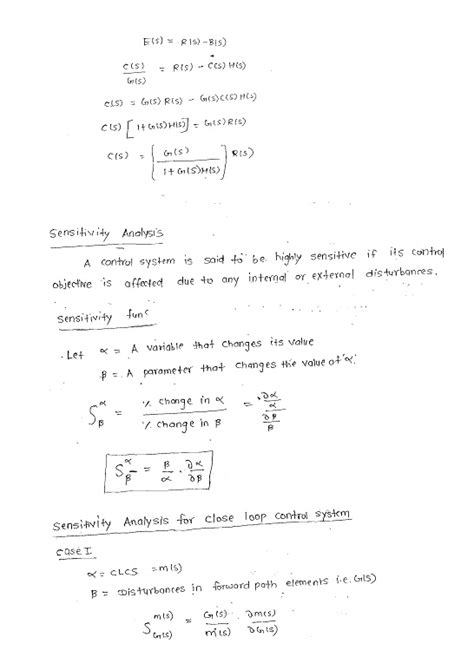 E(s) = R(s) - B(s)
C(s)/G(s) = R(s) - C(s) H(s)
C(s) = G(s) R(s) - G(s) C(s) H(s)
C(s) [1 + G(s) H(s)] = G(s) R(s)
C(s) = [G(s) / 1 + G(s) H(s)] R(s)
Sensitivity Analysis
A control system is said to be highly sensitive if its control
objective is affected due to any internal or external disturbances.
Sensitivity func
Let α = A variable that changes its value
β = A parameter that changes the value of 'α'
S^α_β = % change in α / % change in β = (∂α/α) / (∂β/β)
S^α_β = β/α . ∂α/∂β
Sensitivity Analysis for Close loop control system
Case I
α = CLCS = m(s)
β = Disturbances in forward path elements i.e. G(s)
S^m(s)_G(s) = G(s)/m(s) . ∂m(s)/∂G(s)